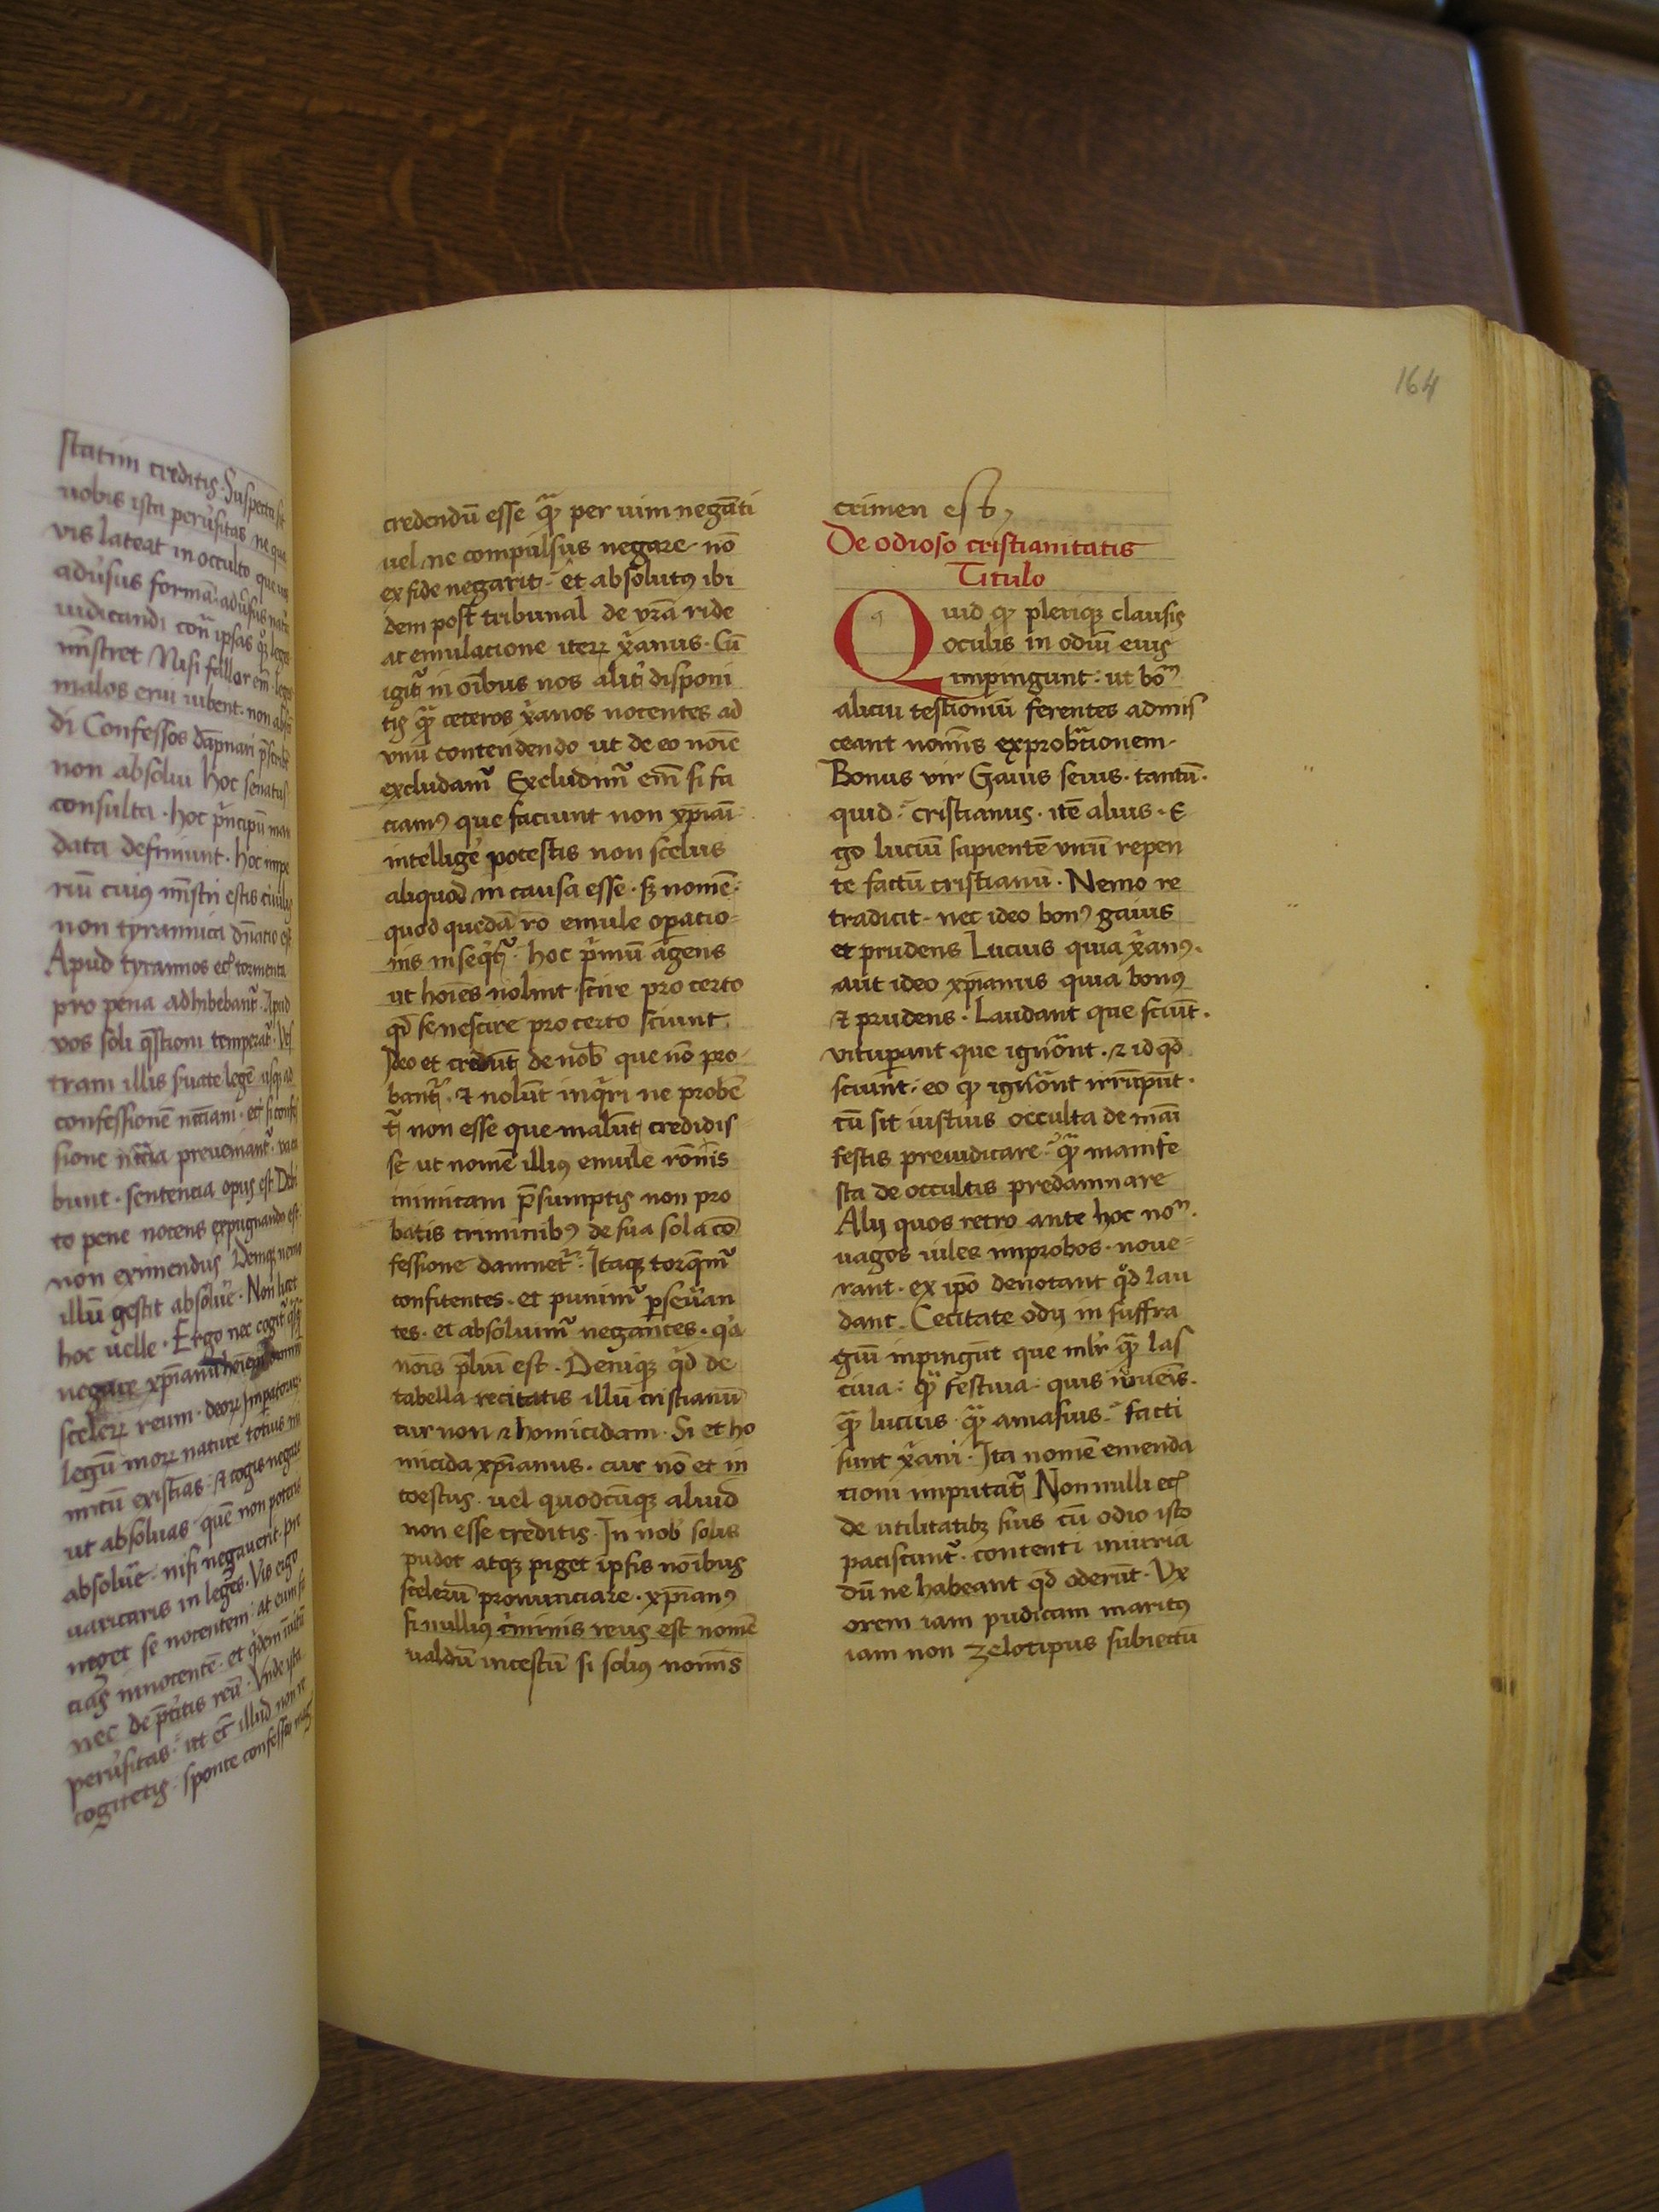 statim creditis. Suspecta sit
uobis ista per̾sitas ne que
vis lateat in occulto que vos
adu̾sus formā. adu̾sus natu
iudicandi con̄ ipsas qͦ leges
mīstret Nisi fallor em̄ leges
malos erui iubent. non abscō
di Confessos dāpnari p̄scribūt
non absolui hoc senatus
consulta. hoc p̾ncipū man
data definiunt. hoc impe
riū cuius mīstri estis ciuilis
non tyrannica dn̄atio est
Apud tyrannos ecꝭ tormenta
pro pena adhibebant᷑. Apud
vos soli q̄stioni temperat᷑. Ves
tram illis suate legē usqꝫ ad
confessionē nc̄c̄iam. ecꝭ si confes
sione nc̄c̄ia preueniant᷑. vaca
bunt. sentencia opus est Debi
to pene nocens expugnandus est
non eximendus Deniqꝫ nemo
illū gestit absolu̾e. Non licet
hoc uelle. Ergo nec cogit᷑ q̾sqꝫ
negare xp̄ianū hoīem omniū
scelerꝝ reum. deorꝝ Imperatorꝫ
legū morꝝ nature totius ini
micū existīas. et cogis negare
ut absoluas quē non poteris
absolu̾e. nisi negauerit. pre
uaricaris in leges. Vis ergo
neget se nocentem. at eum fa
cias innocentē. et q̾dem inuitū
nec de p̄t̾itis reū. Vnde ista
peru̾sitas. ut ec̄ illud non re
cogitetis. sponte confesso mag̾
credendū esse qͣꝫ per uim negāti
uel ne compulsus negare. nō
ex fide negarit. et absolutꝯ ibi
dem post tribunal de vr̄a ride
at emulacione iterꝝ x̄anus. Cū
igit᷑ in oībus nos alit̾ disponi
tis qͣꝫ ceteros x̄anos nocentes ad
vnū contendendo ut de eo noīe
excludam᷑ Excludim᷑ em̄ si fa
ciamꝯ que faciunt non xp̄iani
intellige̾ potestis non scelus
aliquod in causa esse. sꝫ nomē
quod quedā ro emule operatio
nis inseq̾t᷑. hoc p̾mū agens
ut hoīes nolint scire pro certo
qd̄ se nescire pro certo sciunt.
Ideo et credūt de nob̾ que nō pro
bant᷑. ⁊ nolūt inq̾ri ne probē
t᷑ non esse que malūt credidis
se ut nomē illiꝯ emule rōnis
inimicam p̄sumptis non pro
batis criminibꝯ de sua sola cō
fessione damnet᷑. Itaqꝫ torq̄m᷑
confitentes. et punim᷑ ꝑseu̾an
tes. et absoluim᷑ negantes. qͥa
noīs p̄liū est. Deniqꝫ qͥd de
tabella recitatis illū cristianū
cur non ⁊ homicidam. Si et ho
micida xp̄ianus. cur nō et in
cestus. uel quodcūqꝫ aliud
non esse creditis. In nob̾ solis
pudot atqꝫ piget ipsis noībus
scelerū pronunciare. xp̄ianꝯ
si nulliꝯ c̾minis reus est nomē
ualdū incestū si soliꝯ nomīs
crimen est,
De odioso cristianitatis
Titulo
Quid qꝫ pleriqꝫ clausis
oculis in odiū eius
impingunt: ut bōn
alicui testīoniū ferentes admis
ceant nomīs exprobratīonem.
Bonus vir Gaius seius. tantū.
quid. cristianus. itē alius. E
go luciū sapientē virū repen
te factū cristianū. Nemo re
tradicit. nec ideo bonꝯ gaius
et prudens Lucius quia x̄anꝯ.
aut ideo xp̄ianus quia bonꝯ
⁊ prudens. Laudant que sciūt.
vituꝑant que ignōant. ⁊ id qd̄
sciunt. eo qꝫ ignōant irrūpūt.
cū sit iustius occulta de mai
festis preiudicare. qͣꝫ manife
sta de occultis predamnare
Alij quos retro ante hoc non̄.
uagos uiles improbos. noue
rant. ex ip̄o denotant qͦd lau
dant. Cecitate odij in suffra
giū inpingūt que ml̾r qͣꝫ las
ciua: qͣꝫ festiua: quis iuuēis.
qͣꝫ lucius qͣꝫ amasius. facti
sunt x̄ani. Ita nomē emenda
tioni imputat᷑ Non nulli ecꝭ
de utilitatibꝫ suis cū odio isto
paciscunt᷑. contenti iniuria
dū ne habeant qd̄ oderūt. Vx
orem iam pudicam maritꝯ
iam non zelotipus subiectū
164